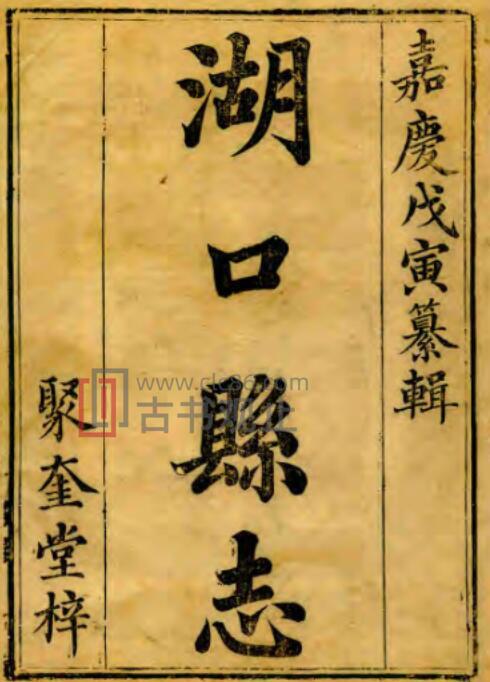 嘉慶戊寅纂輯
湖口縣志
聚奎堂梓
古书